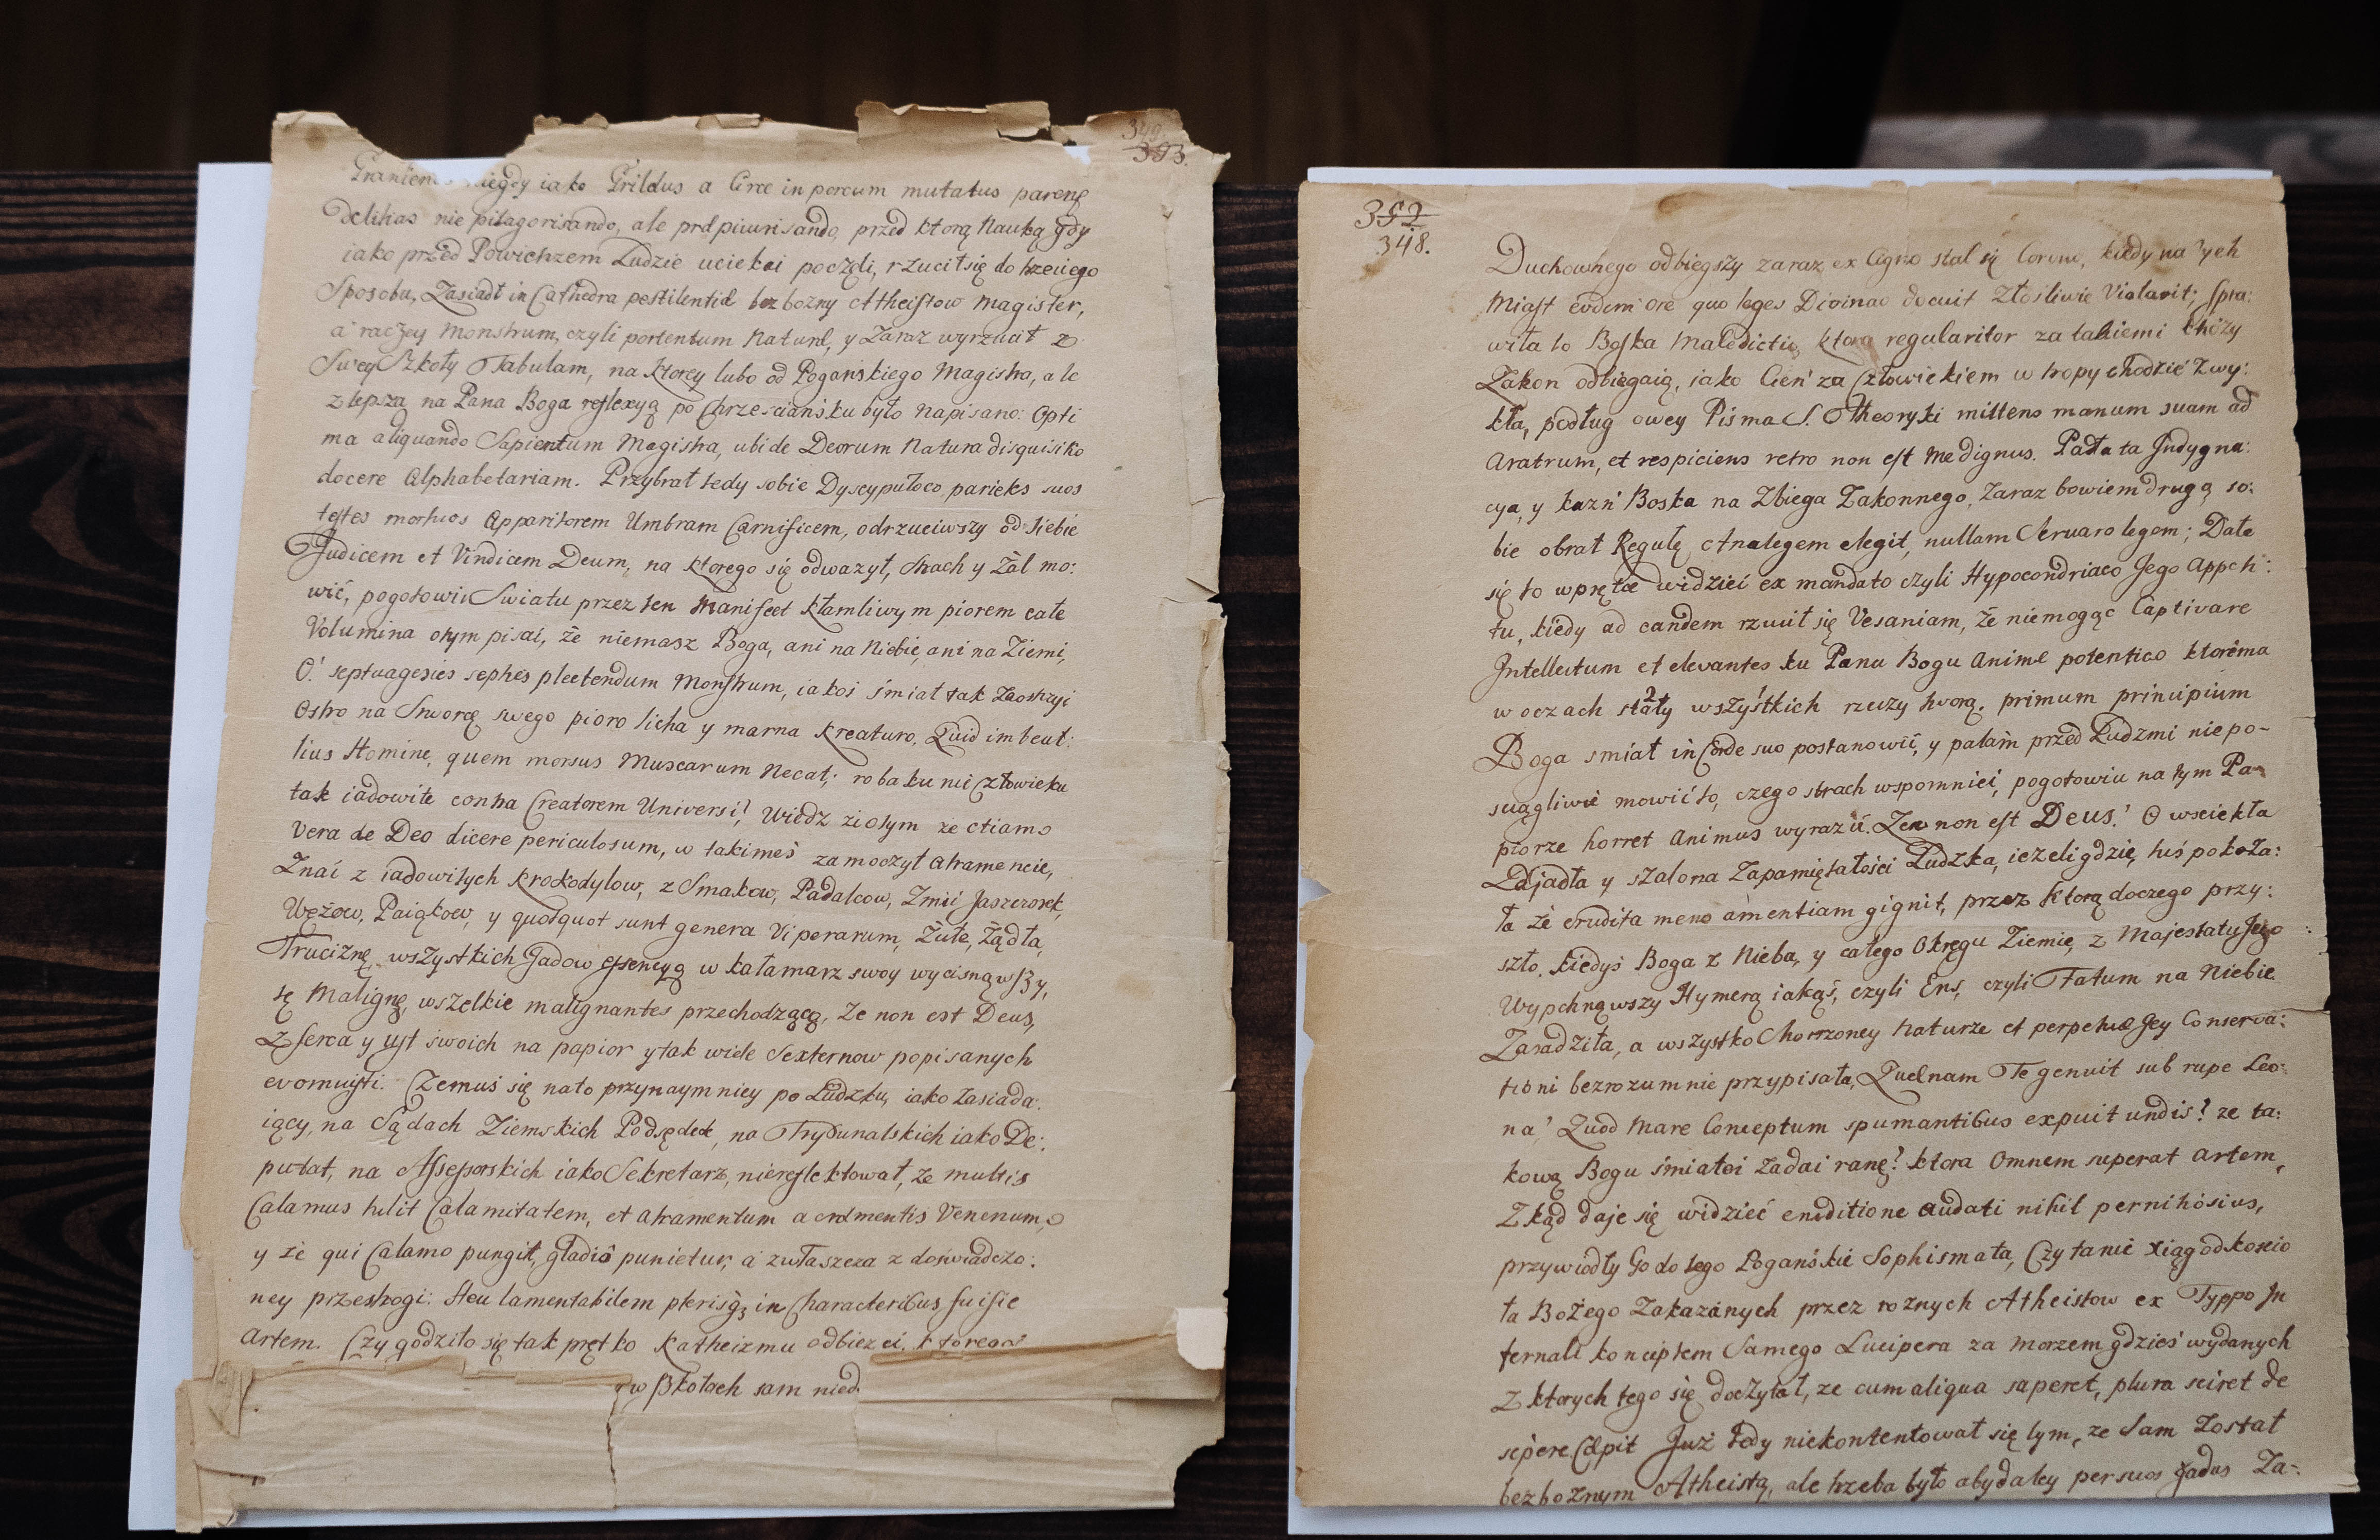 349.
393.
niegdy iako Grildus a Circe in porcum mutatus
delitias nie pitagorisando, ale przed ktorą Nauką gdy
iako przed Powietrzem Ludzie uciekai poczęli, rzucił się do trzeciego
Sposobu, Zasiadł in Cathedra pestilentiæ bezbozny Atheistow Magister,
a raczey Monstrum, czyli portentum Naturæ, y Zaraz wyrzucił z
Swey Szkoły Tabulam, na ktorey lubo od Poganskiego Magistra, ale
z lepsza na Pana Boga reflexyą po Chrzesciańsku było napisano: Opti
ma aliquando Sapientum Magistra, ubi de Deorum Natura disquisitio
docere Alphabetariam. Przybrał tedy sobie parietes suos
testes mortuos Apparitorem Umbram Carnificem, odrzuciwszy od siebie
Judicem et Vindicem Deum, na ktorego się odwazył, strach y Żal mo:
wić, pogotowiu Swiatu przez ten Manifest kłamliwym piorem całe
Volumina otym pisać, że niemasz Boga, ani na Niebie, ani na Ziemi,
O! septuagesies septies plectendum Monstrum, iakoś śmiał tak
Ostro na Stworcę swego pioro licha y marna kreaturo, Quid imbecil:
lius Homine, quem morsus Muscarum Necat; robaku nie Człowieku
tak iadowite contra Creatorem Universi? Widdz ziotym że etiam
Vera de Deo dicere periculosum, w takimeś zamoczył atramencie,
Znać z iadowitych krokodylow, z Smokow, Padalcow, Zmii Jaszczorek,
Wężow, Paiąkow, y quotquot sunt genera Viperarum, Żute, Żądła,
Truciznę, wszystkich Gadow essencyą w kałamarz swoy wycisnąwszy,
tę Malignę, wszelkie malignantes przechodzącą, Ze non est Deus,
Z serca y ust swoich na papier y tak wiele Sexternow popisanych
evomuisti. Czemuś się nato przynaymniey po Ludzku, iako Zasiada:
iący, na Sądach Ziemskich Podsędek, na Trybunalskich iako De:
putat, na Assessorskich iako Sekretarz, niereflektował, że multis
Calamus tulit Calamitatem, et Atramentum Venenum,
y że qui Calamo pungit, gladio punietur, a zwłaszcza z doświadczo:
ney przestrogi: Heu lamentabilem in Characteribus fuisse
Artem. Czy godziło się tak prętko Katheizmu odbiezei, ktorego
w Szkołach sam
352
348.
Duchownego odbiegszy zaraz ex Cigno stal się Corvus, kiedy na tych
Miast eodem ore quo leges Divinas docuit Złośliwie Violavit; spra:
wiła to Boska Maledictio, ktora regulariter za takiemi ktorzy
Zakon odbiegaią, iako Cień za Człowiekiem w tropy chodzić zwy:
kła, podług owey Pisma S. Theoryki mittens manum suam ad
Aratrum, et respiciens retro non est Me dignus. Padła ta Jndygna:
cya, y kazń Boska na Zbiega Zakonnego, Zaraz bowiem drugą so:
bie obrał Regułę Analegem elegit, nullam Servare legem; Dałe
się to wprętce widzieć ex mandato czyli Hypocondriaco Jego Appeti:
tu, kiedy ad eandem rzucił się Vesaniam, Że niemogąc Captivare
Jntellectum et elevantes ku Panu Bogu Animæ potentias ktorema
w oczach 2 stały wszystkich rzeczy tworą. primum principium
Boga smiał in Corde suo postanowić, y palam przed Ludzmi niepo-
sciągliwie mowić to, czego strach wspomniei, pogotowiu na tym Pa
piorze horret Animus wyrazić. Zew non est Deus.! O wsciekła
Zdjadła y szalona Zapamiętałości Ludzka, ieżeli gdzię tuś pokaza:
ła że erudita mens amentiam gignit, przez ktorą do czego przy:
szło. kiedyś Boga z Nieba, y całego Okręgu Ziemie, z Majestatu Jego
Wypchnąwszy Hymerą iakąś, czyli Ens, czyli Fatum na Niebie
Zasadziła, a wszystko Stworzoney Naturze et perpetuæ Jey Conserva:
tioni bezrozumnie przypisała, Quænam Te genuit sub rupe Leo:
na? Quod Mare Conceptum spumantibus expuit undis? ze ta:
kową Bogu śmiałei Zadai ranę? ktora Omnem superat artem,
Zkąd daje się widzieć eruditione audati nihil pernitiosius,
przywiodły Go do tego Pogańskie Sophismata, Czytanie Xiąg od koscio
ła Bożego Zakazanych przez roznych Atheistow ex Typpo Jn
fernali konciptem Samego Lucipera za morzem gdzieś wydanych
z ktorych tego się doczytał, ze cum aliqua saperet, plura sciret de
sepere Cæpit Już tedy niekontentował się tym, ze Sam Został
bezboznym Atheistą, ale trzeba było aby daley per suos gradus Za-: